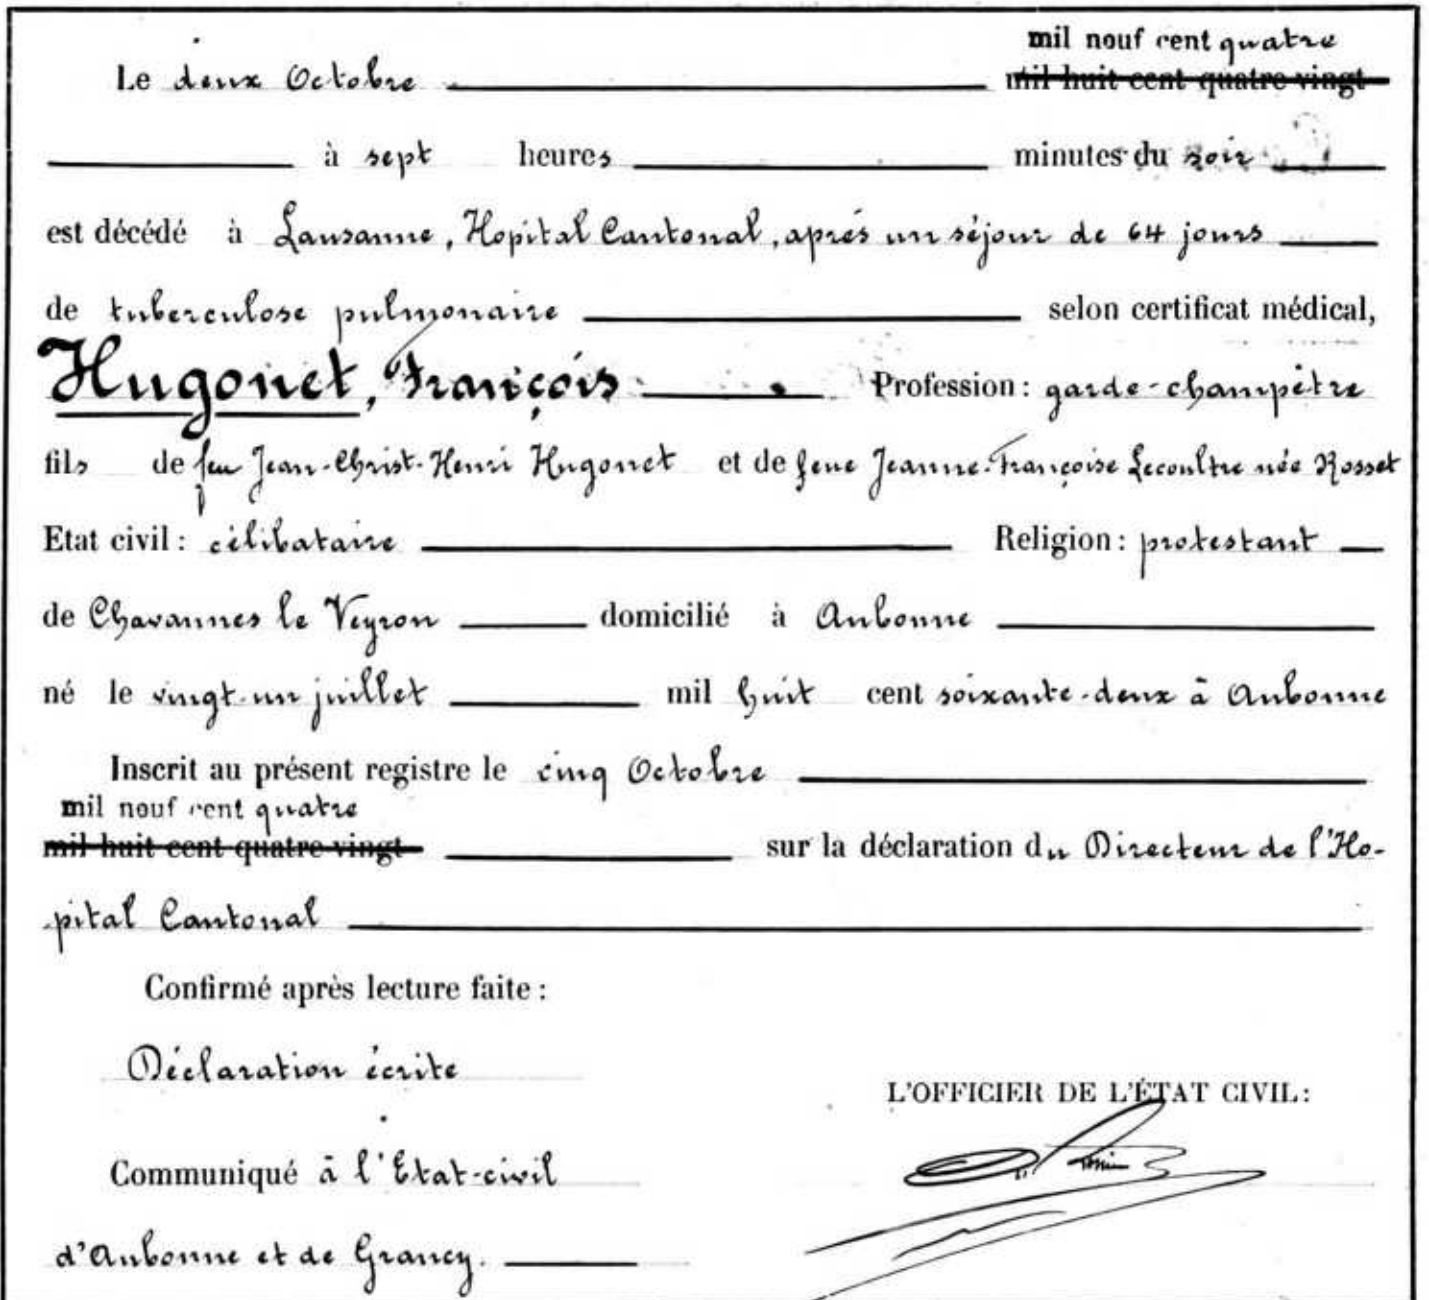 mil nouf cent quatre
Le deux Octobre mil huit cent quatre vingt
à sept heures minutes du soir
est décédé à Lausanne, Hopital Cantonal, après un séjour de 64 jours
de tuberculose pulmonaire selon certificat médical,
Hugonet, François. Profession: garde-champêtre
fils de feu Jean-Christ-Henri Hugonet et de feue Jeanne-Françoise Lecoultre née Rosset
Etat civil: célibataire Religion: protestant
de Chavannes le Veyron domicilié à Aubonne
né le vingt-un juillet mil huit cent soixante-deux à Aubonne
Inscrit au présent registre le cinq Octobre
mil nouf cent quatre
mil huit cent quatre vingt sur la déclaration du Directeur de l'Ho-
pital Cantonal
Confirmé après lecture faite:
Déclaration écrite
L'OFFICIER DE L'ÉTAT CIVIL:
Communiqué à l'Etat-civil
d'Aubonne et de Grancy.